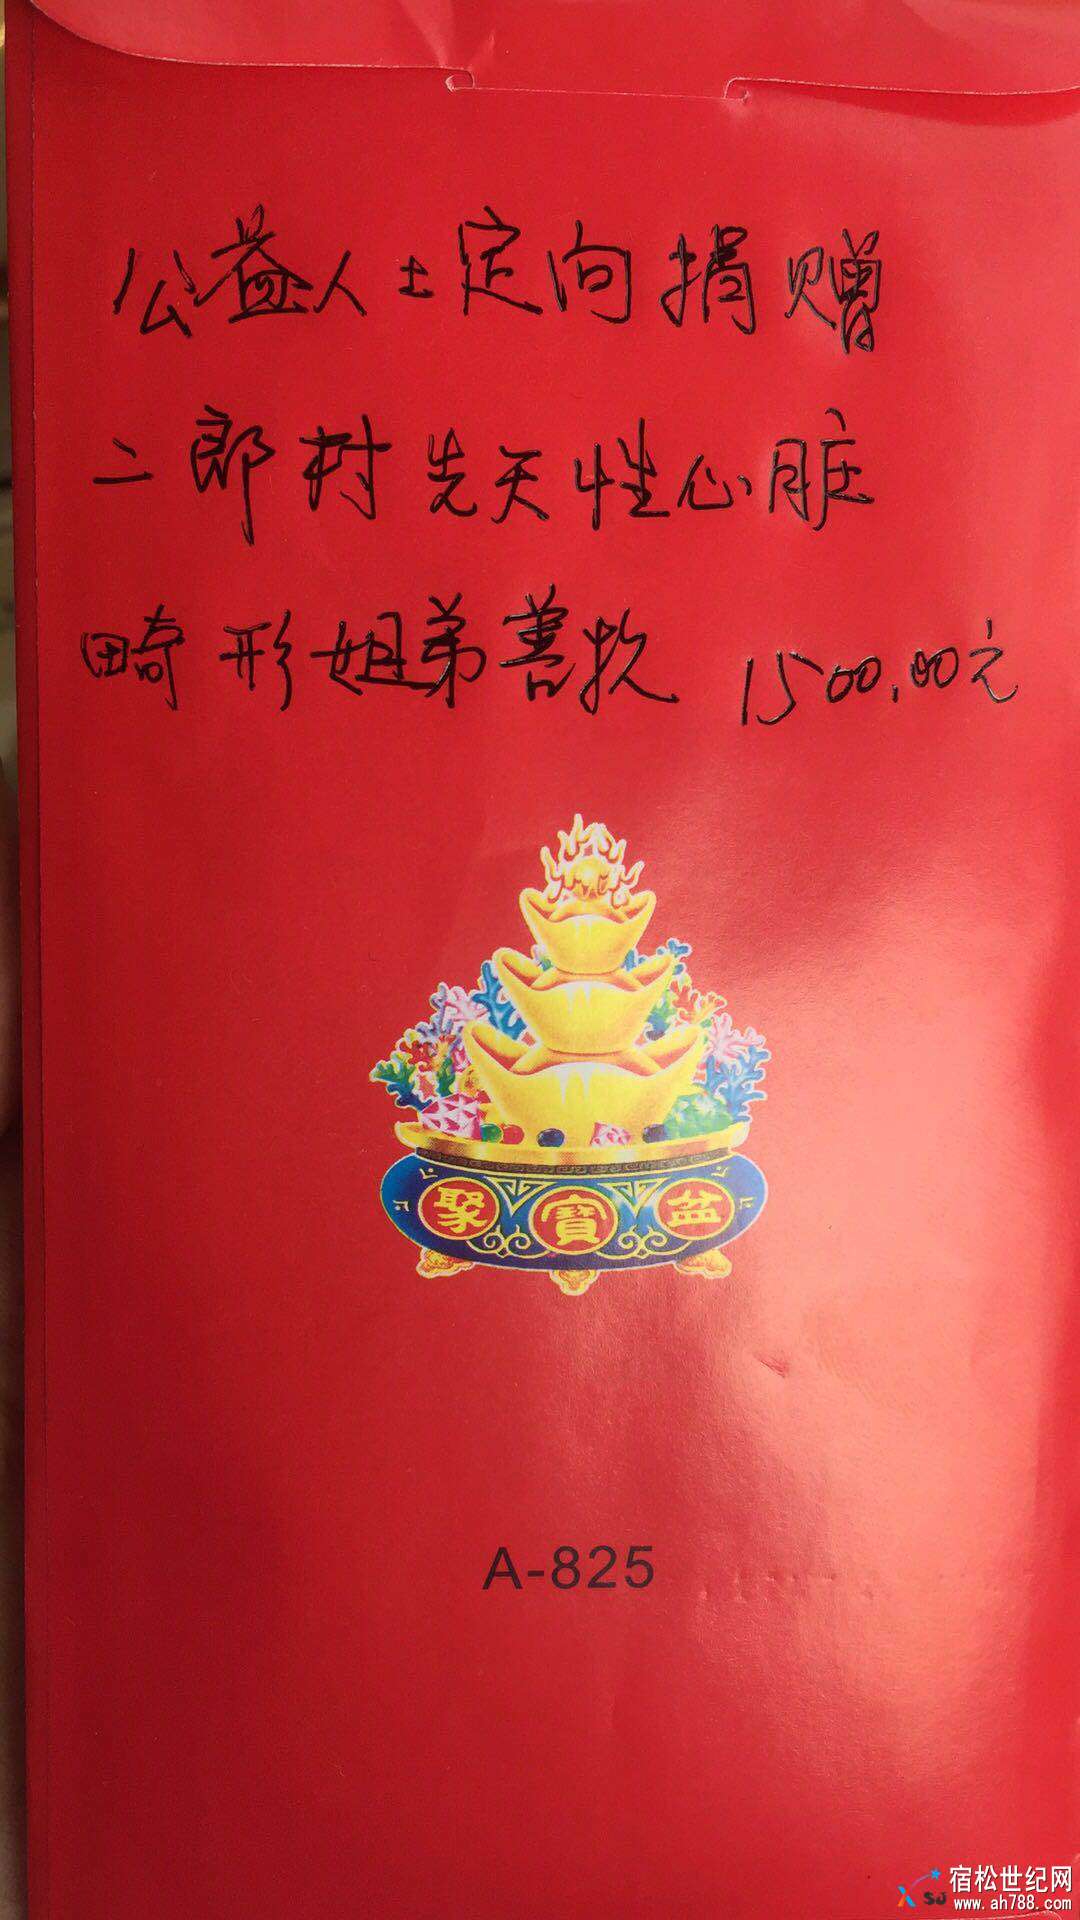 公益人士定向捐赠
二郎村先天性心脏
畸形姐弟善款 1500.00元
聚寶盆
A-825
XSJ 宿松世纪网
www.ah788.com